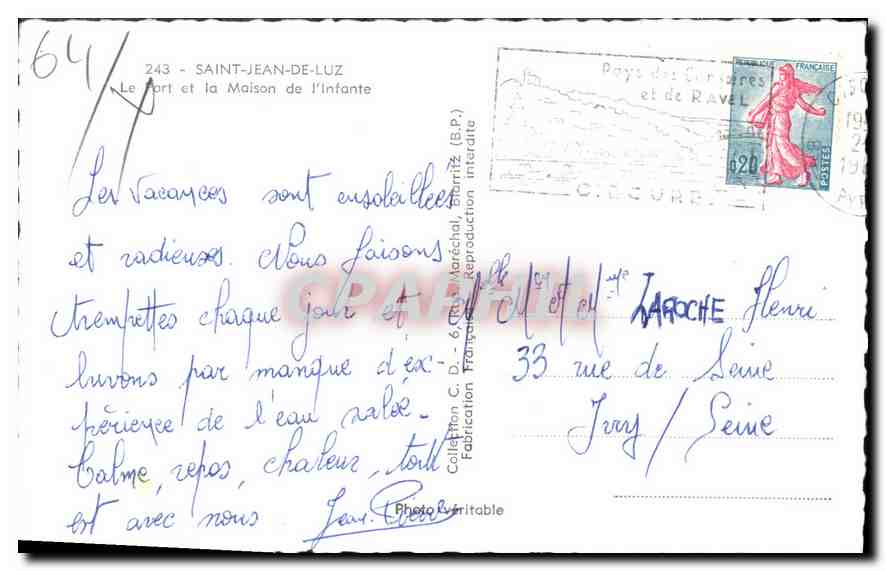 64
243 - SAINT-JEAN-DE-LUZ
Le Port et la Maison de l'Infante
Les vacances sont ensoleillées
et radieuses. Nous faisons
trempettes chaque jour et
buvons par manque d'ex-
périence de l'eau salée.
Calme, repos, chaleur, tout
est avec nous. Jean-Pierre
Photo véritable
Collection C. D. - 6, Rue Maréchal, Biarritz (B.P.)
Fabrication Française - Reproduction interdite
Pays des Corsaires
et de RAVEL
CIBOURE
REPUBLIQUE FRANÇAISE
0,20
POSTES
CPAPHIL
Mr et Mme LAROCHE Henri
33 rue de Seine
Ivry / Seine